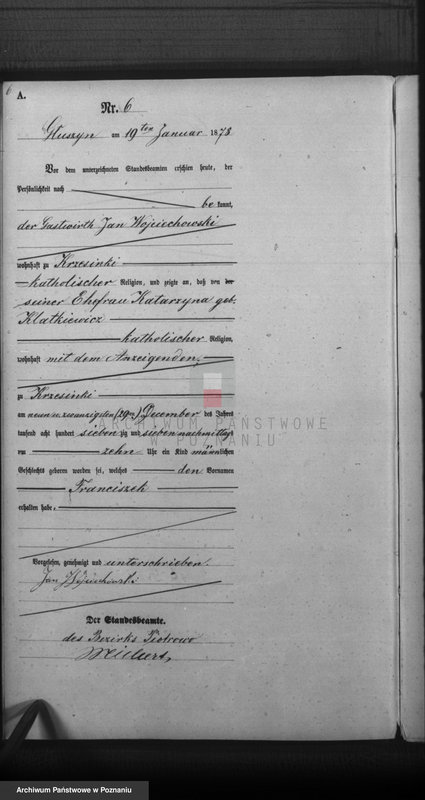 6
A.
Nr. 6
Głuszyn am 19ten Januar 1878
Vor dem unterzeichneten Standesbeamten erschien heute, der
Persönlichkeit nach
bekannt,
der Gastwirth Jan Wojciechowski
wohnhaft zu Krzesinki
katholischer Religion, und zeigte an, daß von der
seiner Ehefrau Katarzyna geb.
Klatkiewicz
katholischer Religion,
wohnhaft mit dem Anzeigenden,
zu Krzesinki
am neun u. zwanzigsten (29ten) December des Jahres
tausend acht hundert siebenzig und sieben nachmittags
um zehn Uhr ein Kind männlichen
Geschlechts geboren worden sei, welches den Vornamen
Franciszek
erhalten habe,
ARCHIWUM PAŃSTWOWE
W POZNANIU
Vorgelesen, genehmigt und unterschrieben.
Jan Wojciechowski
Der Standesbeamte.
des Bezirks Piotrowo
Archiwum Państwowe w Poznaniu